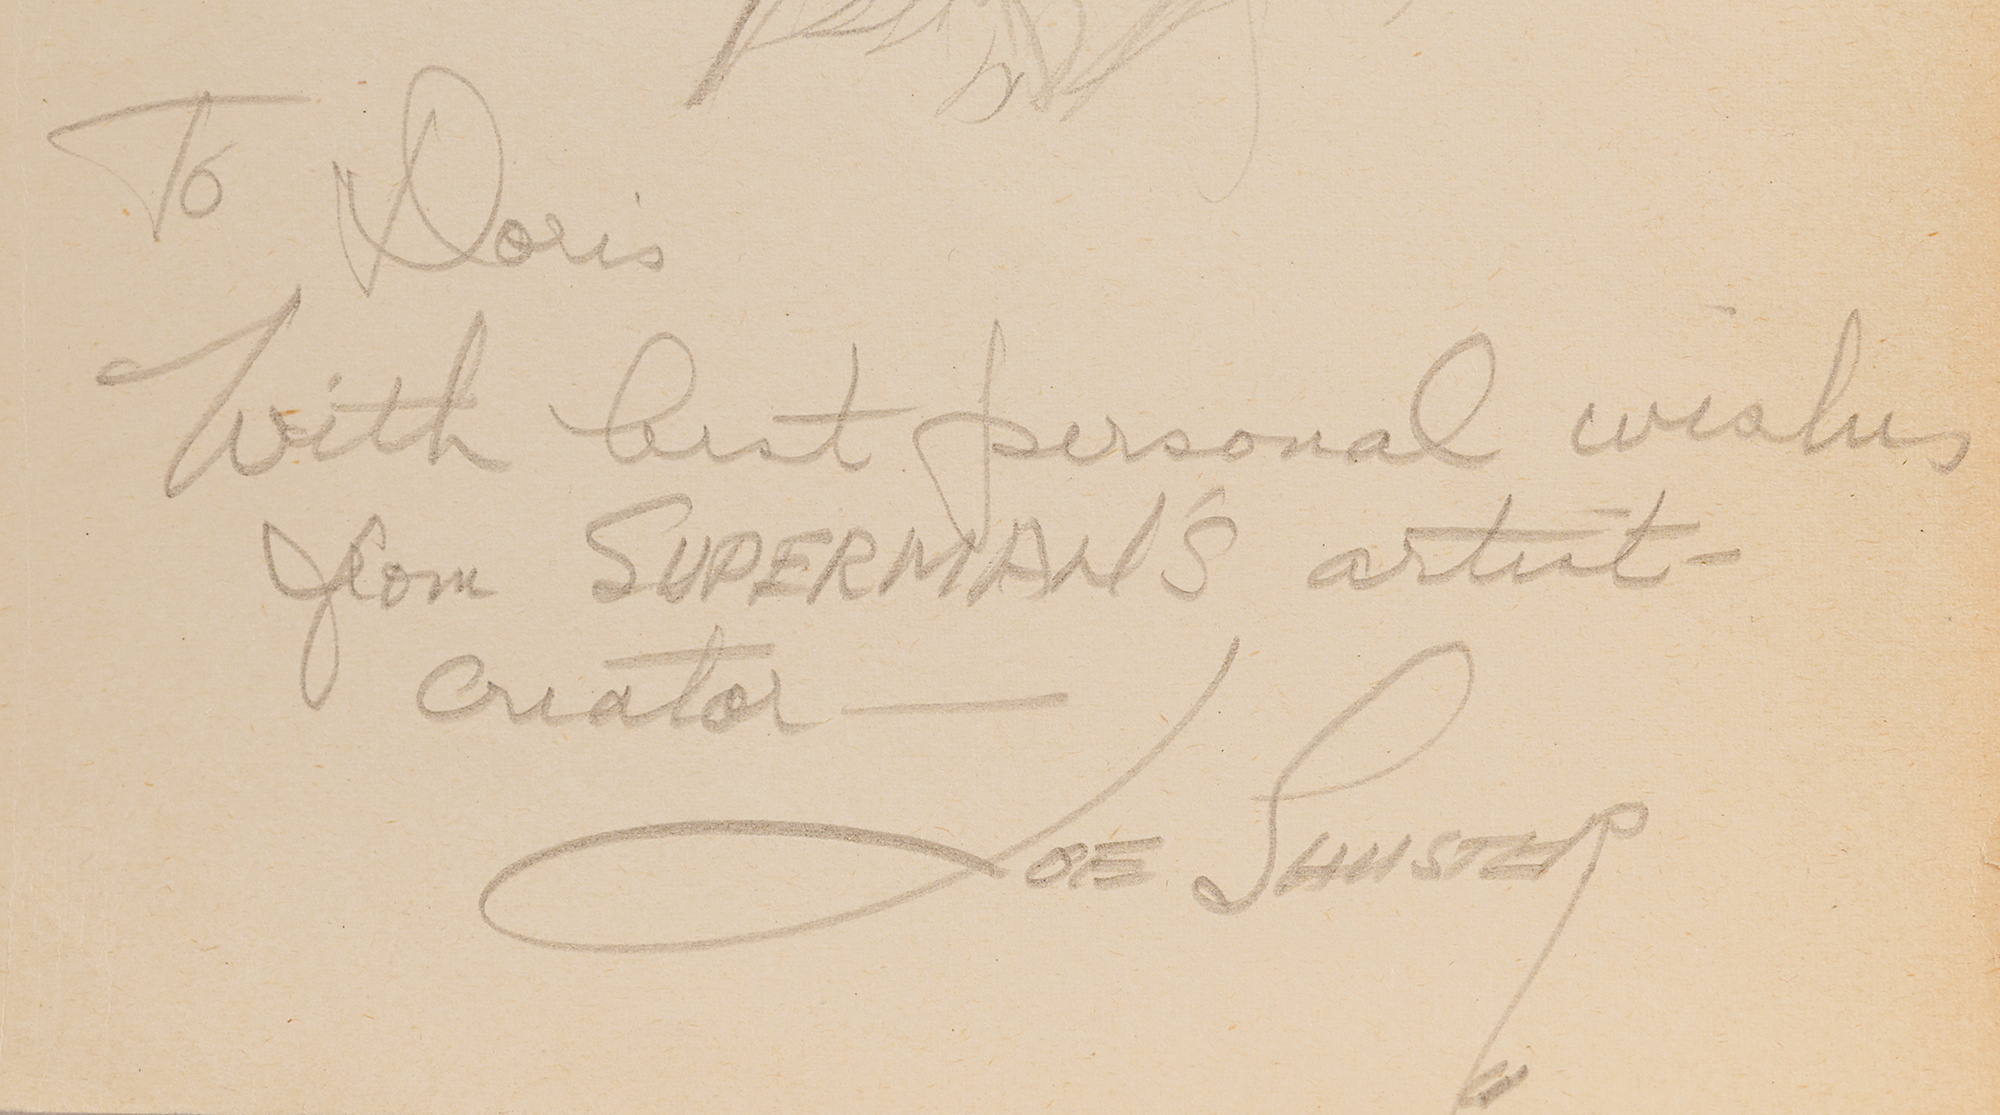 To Doris
With best personal wishes
from SUPERMAN'S artist-
creator—
JOE SHUSTER